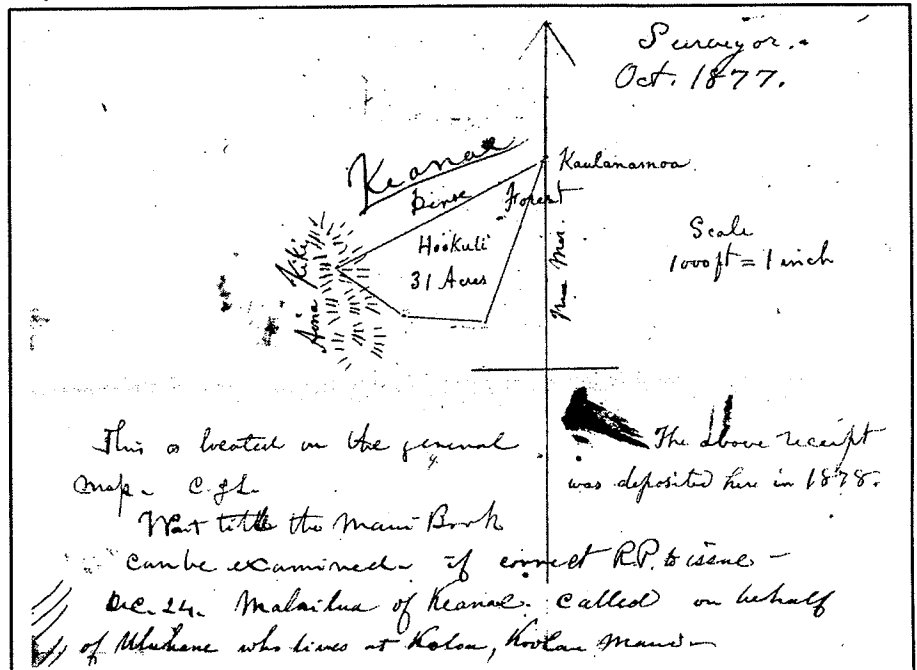 Surveyor.
Oct. 1877.
Keanae
Kaulanamoa
Dense Forest
Hookuli
31 Acres
Scale
1000 ft = 1 inch
Aina Kiki
Mer.
This is located on the general
map. C.J.L.
The above receipt
was deposited here in 1878.
Want title the Maui Book
can be examined - if correct R.P. to issue -
Dec. 24. Malailua of Keanae called on behalf
of Uluhane who lives at Kolou, Koolau Maui -